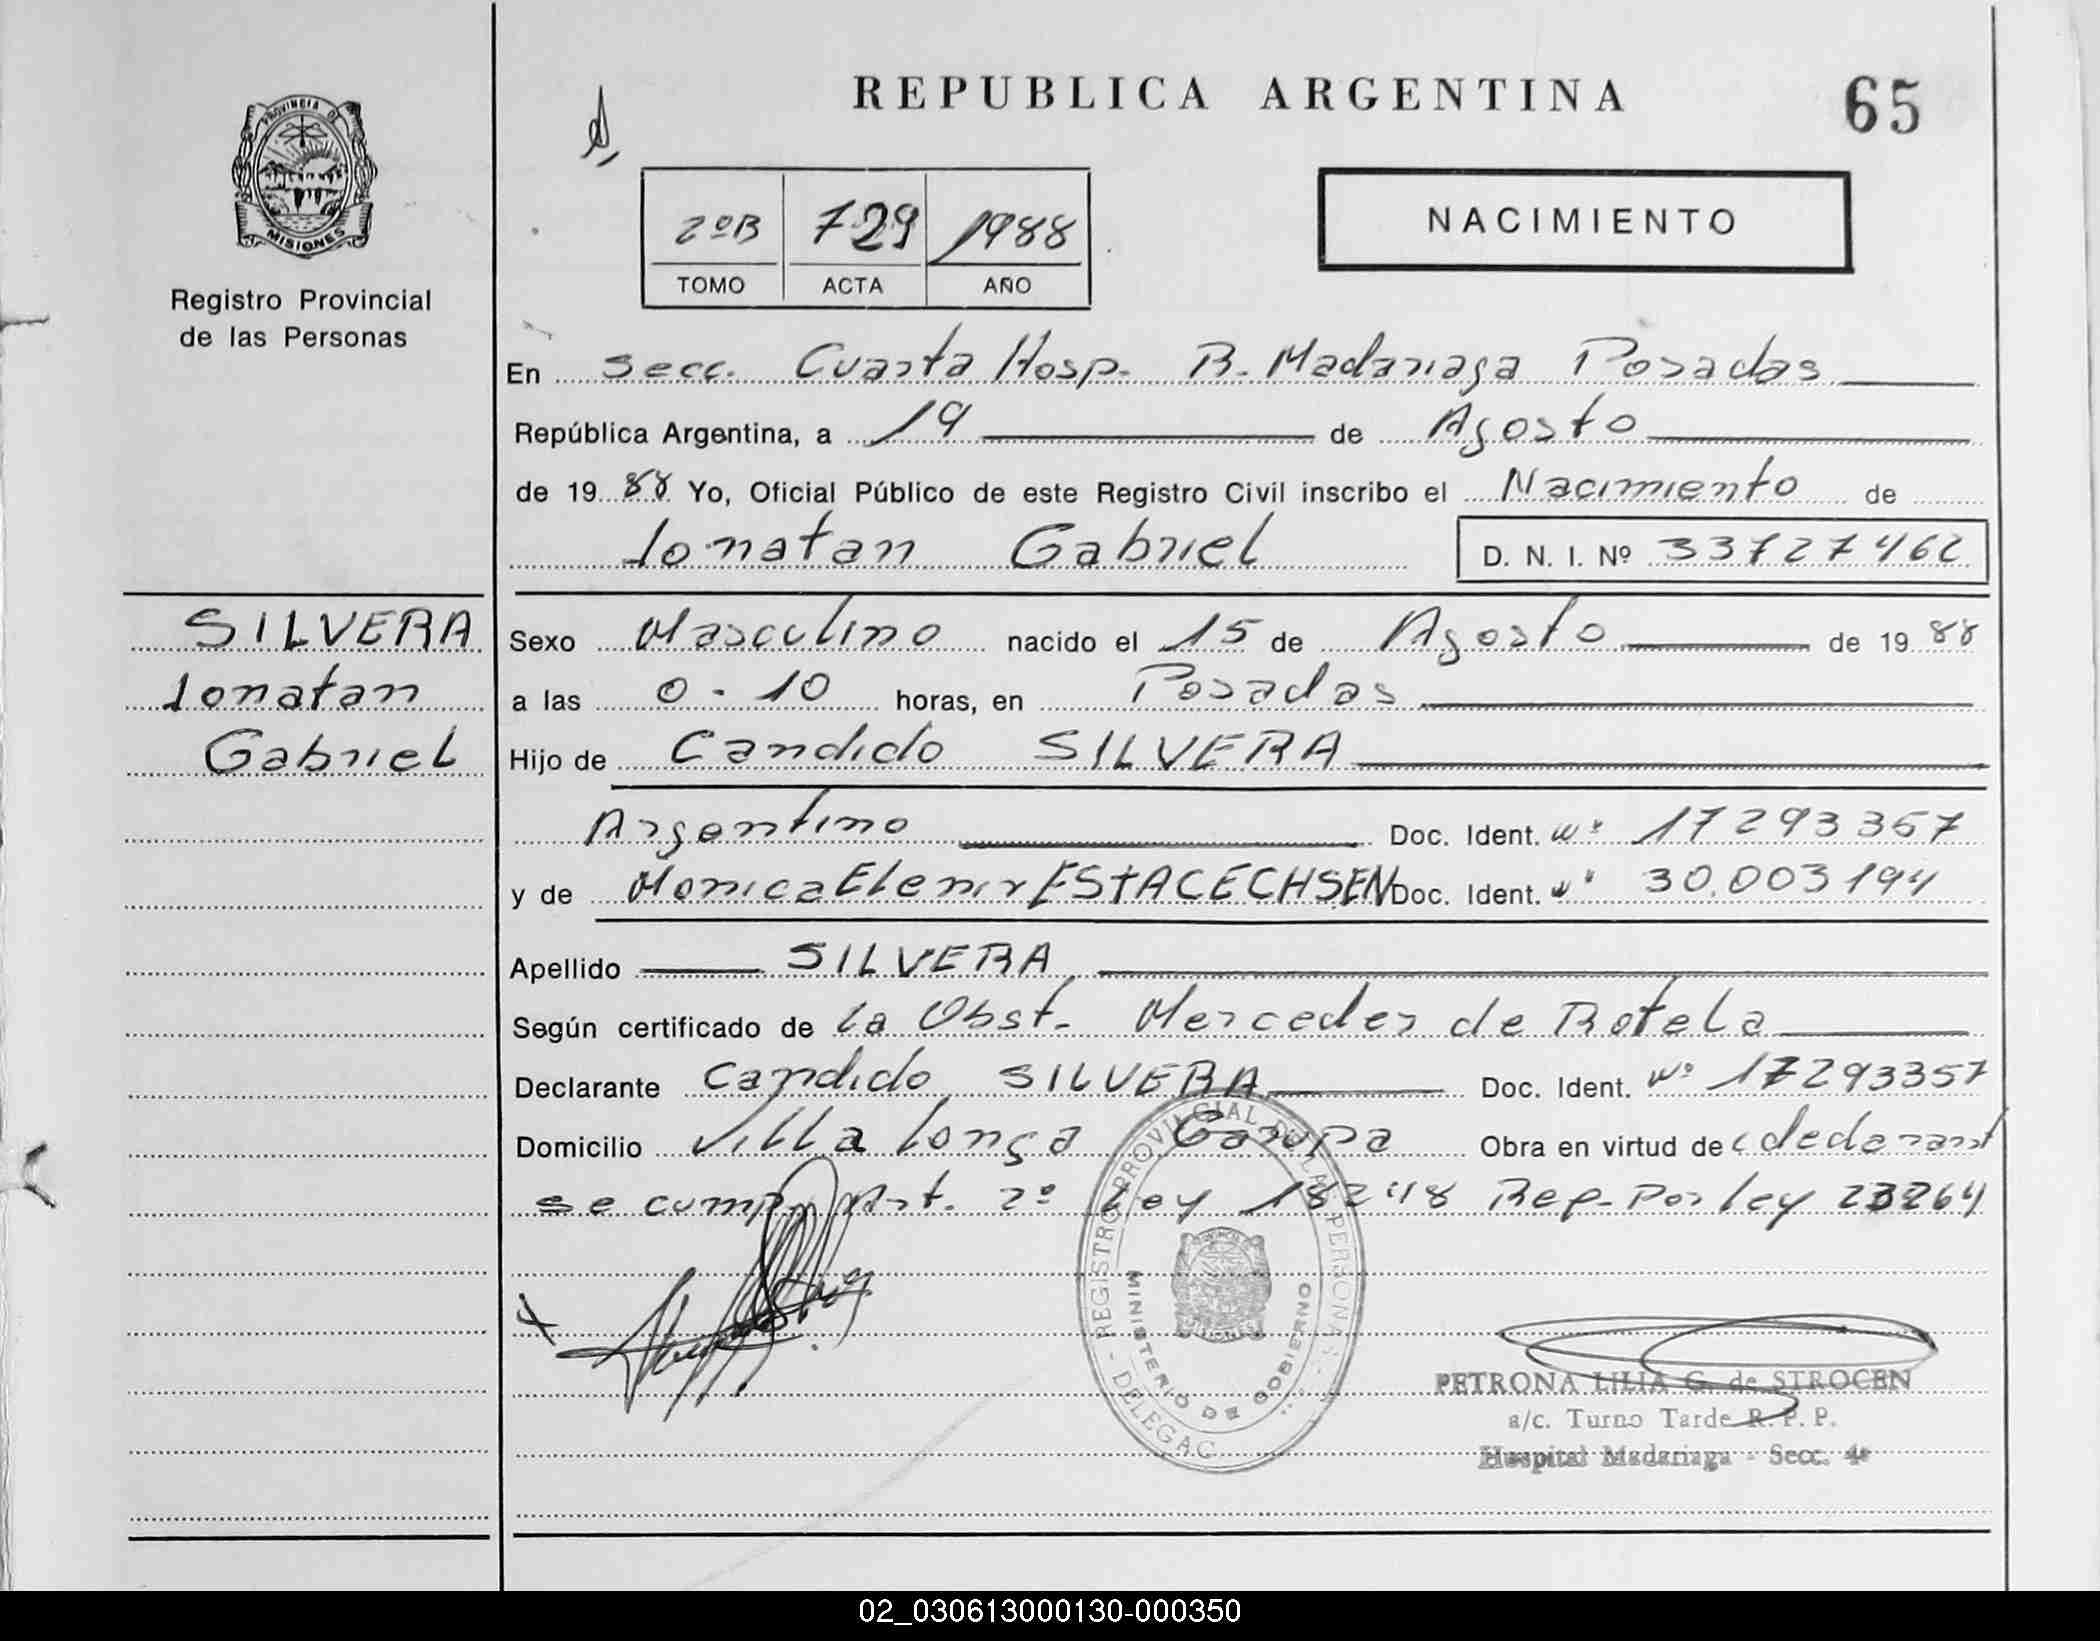 REPUBLICA ARGENTINA
65
PROVINCIA DE
MISIONES
Registro Provincial
de las Personas
2ºB 729 1988
TOMO ACTA AÑO
NACIMIENTO
En Secc. Cuarta Hosp. R. Madariaga Posadas
República Argentina, a 19 de Agosto
de 19 88 Yo, Oficial Público de este Registro Civil inscribo el Nacimiento de
Ionatan Gabriel D. N. I. Nº 33727462
SILVERA
Ionatan
Gabriel
Sexo Masculino nacido el 15 de Agosto de 19 88
a las 0-10 horas, en Posadas
Hijo de Candido SILVERA
Argentino Doc. Ident. Nº 17293357
y de Monica Elenir ESTACECHSEN Doc. Ident. Nº 30.003194
Apellido SILVERA
Según certificado de la Obst. Mercedes de Rotela
Declarante Candido SILVERA Doc. Ident. Nº 17293357
Domicilio Villa Longa Garupa Obra en virtud de declarant
se cump. Art. 2º Ley 18248 Rep. Por ley 23264
REGISTRO PROVINCIAL DE LAS PERSONAS
MINISTERIO DE GOBIERNO
DELEGAC.
PETRONA LILIA G. de STROCEN
a/c. Turno Tarde R. P. P.
Hospital Madariaga - Secc. 4ª
02_030613000130-000350